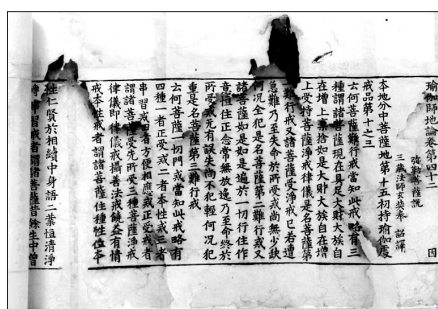 瑜伽師地論卷第四十二
彌勒菩薩說
三藏法師玄奘奉 詔譯
因
本地分中菩薩地第十五初持瑜伽處
戒品第十之三
云何菩薩難行戒當知此戒略有三
種謂諸菩薩現在具足大財大族自
在增上棄捨如是大財大族自在增
上受持菩薩淨戒律儀是名菩薩第
難行戒又諸菩薩受淨戒已若遭
急難乃至失命於所受戒尚無少缺
何況全犯是名菩薩第二難行戒又
諸菩薩如是如是遍於一切行住作
意恒住正念常無放逸乃至命終於
所受戒無有誤失尚不犯輕何況犯
重是名菩薩第三難行戒
云何菩薩一切門戒當知此戒略有
四種一者正受戒二者本性戒三者
串習戒四者方便相應戒正受戒者
謂諸菩薩受先所受三種菩薩淨戒
律儀即律儀戒攝善法戒饒益有情
戒本性戒者謂諸菩薩住種性位本
性仁賢於相續中身語二業恒清淨
轉串習戒者謂諸菩薩昔餘生中曾